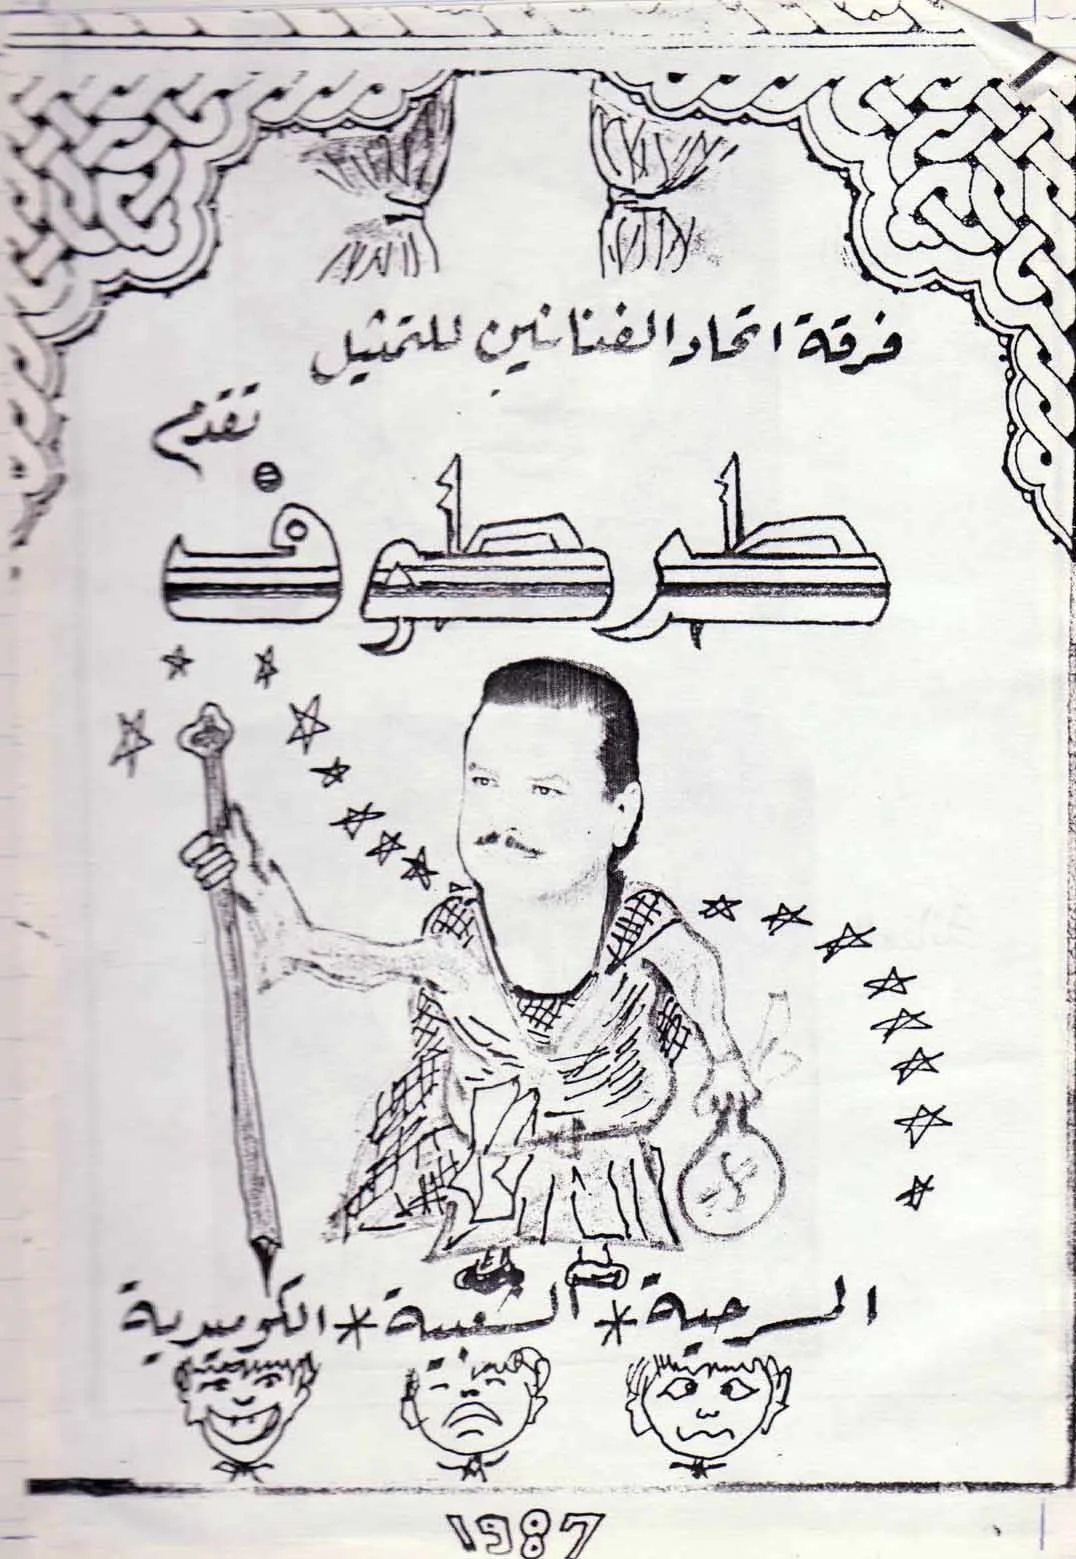 فرقة اتحاد الفنانين للتمثيل
تقدم
طرطوف
المسرحية * الشعبية * الكوميدية
1987